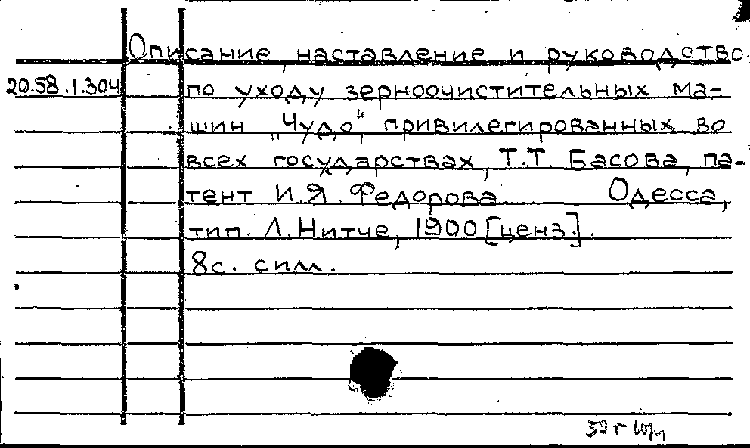 Описание, наставление и руководство
20.58.1.304 по уходу зерноочистительных ма-
шин „Чудо", привилегированных во
всех государствах, Т.Т. Басова, па-
тент И.Я. Федорова. Одесса,
тип. Л. Нитче, 1900 [ценз.].
8с. с илл.